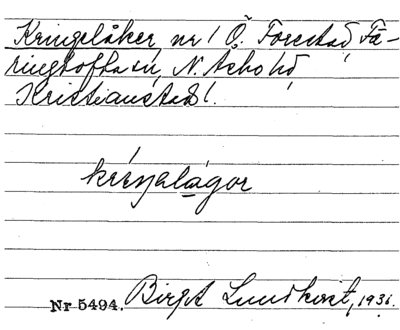 Kringelåker, nr 1 Ö. Forestad Fä-
ringtofta sn, N. Åsbo hd
Kristianstads l.
kréŋalågor
Nr 5494. Birgit Lundkvist, 1936.